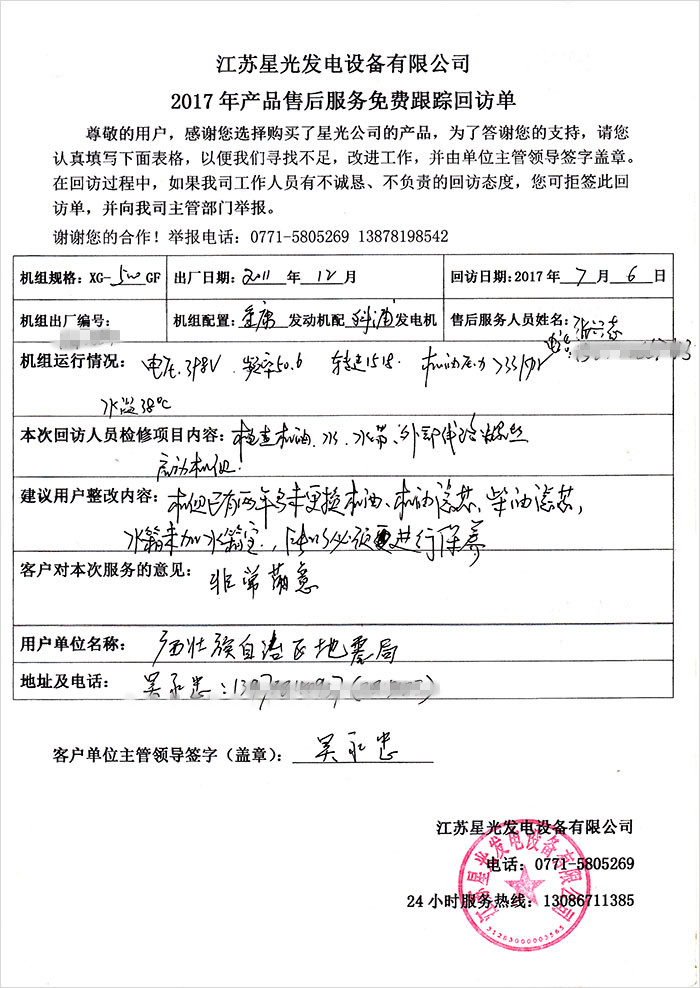 江苏星光发电设备有限公司
2017年产品售后服务免费跟踪回访单
尊敬的用户，感谢您选择购买了星光公司的产品，为了答谢您的支持，请您
认真填写下面表格，以便我们寻找不足，改进工作，并由单位主管领导签字盖章。
在回访过程中，如果我司工作人员有不诚恳、不负责的回访态度，您可拒签此回
访单，并向我司主管部门举报。
谢谢您的合作！举报电话：0771-5805269 13878198542
机组规格：XG-500GF 出厂日期：2011 年 12 月 回访日期：2017年 7 月 6 日
机组出厂编号： 机组配置：重康 发动机配 科浦 发电机 售后服务人员姓名：
电话：
机组运行情况： 电压398V 频率50.6 转速1518 机油压力
水温38℃
本次回访人员检修项目内容：检查机油、水、水箱、外部
启动机组.
建议用户整改内容：机组已有两年多未更换机油、机油滤芯、柴油滤芯，
水箱未加水箱宝，所以必须要进行保养
客户对本次服务的意见： 非常满意
用户单位名称： 广西壮族自治区地震局
地址及电话： 吴永忠：
客户单位主管领导签字（盖章）： 吴永忠
江苏星光发电设备有限公司
电话：0771-5805269
24小时服务热线：13086711385
江苏星光发电设备有限公司
31283000003565